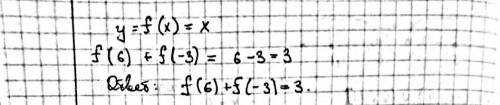 y = f(x) = x
f(6) + f(-3) = 6 - 3 = 3
Ответ: f(6) + f(-3) = 3.